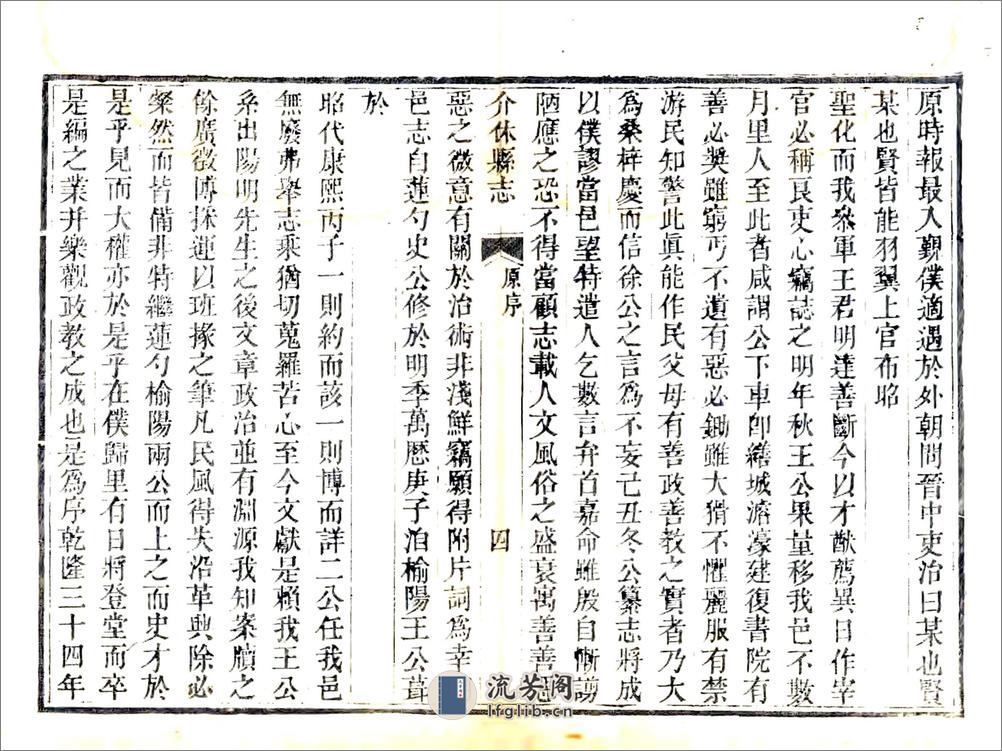 原時報最入覲僕適遇於外朝問晉中吏治曰某也賢
某也賢皆能羽翼上官布昭
聖化而我叅軍王君明達善斷今以才猷薦異日作宰
官必稱良吏心竊誌之明年秋王公果量移我邑不數
月里人至此者咸謂公下車卽繕城濬濠建復書院有
善必奬雖窮丐不遺有惡必鋤雖大猾不懼麗服有禁
游民知警此眞能作民父毋有善政善教之實者乃大
爲桑梓慶而信徐公之言爲不妄己丑冬公纂志將成
以僕謬當邑望特遣人乞數言弁首嘉命雖殷自慚謭
陋應之恐不得當顧志載人文風俗之盛衰寓善善惡
介休縣志
原序
四
惡之微意有關於治術非淺鮮竊願得附片詞爲幸
邑志自蓮勺史公修於明季萬厯庚子洎榆陽王公葺
於
昭代康熙丙子一則約而該一則博而詳二公任我邑
無廢弗舉志乘猶切蒐羅苦心至今文獻是賴我王公
系出陽明先生之後文章政治並有淵源我知案牘之
餘廣徵博採運以班掾之筆凡民風得失沿革興除必
燦然而皆備非特繼蓮勺榆陽兩公而上之而史才於
是乎見而大權亦於是乎在僕歸里有日將登堂而卒
是編之業并樂觀政教之成也是爲序乾隆三十四年
流芳阁
lfglib.cn